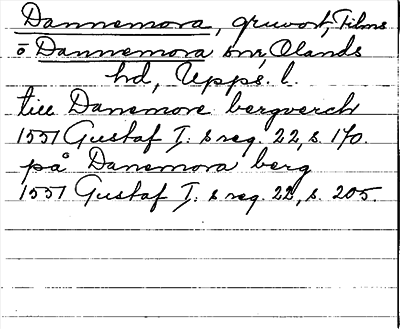 Dannemora, gruvort, Films
o Dannemora snr, Olands
hd, Upps. l.
till Danemore bergverch
1551 Gustaf I: s reg. 22, s. 170.
på Danemora berg
1551 Gustaf I: s reg. 22, s. 205.